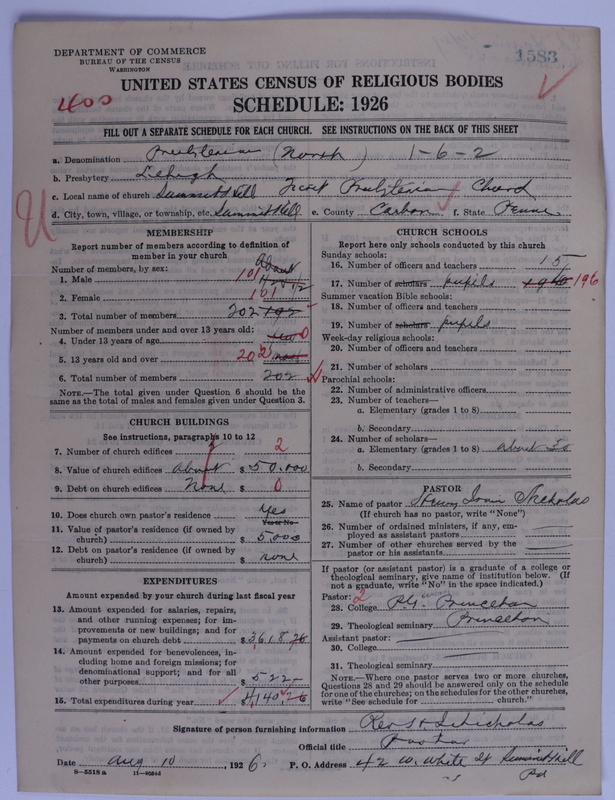 DEPARTMENT OF COMMERCE
BUREAU OF THE CENSUS
WASHINGTON
1583
UNITED STATES CENSUS OF RELIGIOUS BODIES
400
SCHEDULE: 1926
FILL OUT A SEPARATE SCHEDULE FOR EACH CHURCH. SEE INSTRUCTIONS ON THE BACK OF THIS SHEET
a. Denomination Presbyterian (North) 1-6-2
b. Presbytery Lehigh
c. Local name of church Summit Hill First Presbyterian Church
d. City, town, village, or township, etc. Summit Hill e. County Carbon f. State Penna
MEMBERSHIP
Report number of members according to definition of member in your church
Number of members, by sex:
About
1. Male 101
2. Female 101
3. Total number of members 202 192
Number of members under and over 13 years old:
4. Under 13 years of age 0
5. 13 years old and over 202
6. Total number of members 202
NOTE.—The total given under Question 6 should be the same as the total of males and females given under Question 3.
CHURCH BUILDINGS
See instructions, paragraphs 10 to 12
7. Number of church edifices 2
8. Value of church edifices about $ 50,000
9. Debt on church edifices None $ 0
10. Does church own pastor's residence Yes
Yes or No
11. Value of pastor's residence (if owned by church) $ 5,000
12. Debt on pastor's residence (if owned by church) $ none
EXPENDITURES
Amount expended by your church during last fiscal year
13. Amount expended for salaries, repairs, and other running expenses; for improvements or new buildings; and for payments on church debt $ 3,618.26
14. Amount expended for benevolences, including home and foreign missions; for denominational support; and for all other purposes $ 522-
15. Total expenditures during year $ 4,140.26
CHURCH SCHOOLS
Report here only schools conducted by this church
Sunday schools:
16. Number of officers and teachers 15
17. Number of scholars pupils 196
Summer vacation Bible schools:
18. Number of officers and teachers
19. Number of scholars pupils
Week-day religious schools:
20. Number of officers and teachers
21. Number of scholars
Parochial schools:
22. Number of administrative officers
23. Number of teachers—
a. Elementary (grades 1 to 8)
b. Secondary
24. Number of scholars—
a. Elementary (grades 1 to 8) about
b. Secondary
PASTOR
25. Name of pastor Nicholas
(If church has no pastor, write "None")
26. Number of ordained ministers, if any, employed as assistant pastors
27. Number of other churches served by the pastor or his assistants
If pastor (or assistant pastor) is a graduate of a college or theological seminary, give name of institution below. (If not a graduate, write "No" in the space indicated.)
Pastor: 2
28. College Princeton
29. Theological seminary Princeton
Assistant pastor:
30. College
31. Theological seminary
NOTE.—Where one pastor serves two or more churches, Questions 28 and 29 should be answered only on the schedule for one of the churches; on the schedules for the other churches, write "See schedule for church."
Signature of person furnishing information Rev Nicholas
Official title Pastor
Date Aug 10, 1926. P. O. Address 42 W. White St Summit Hill
Pa
8-5518 a